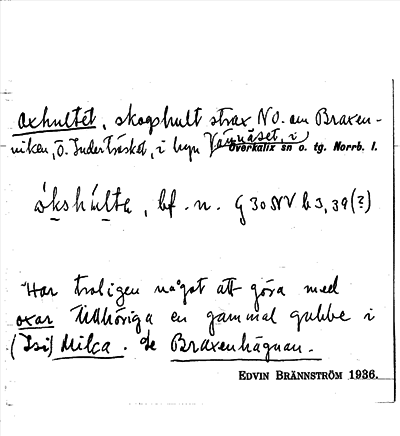 Oxhultet, skogshult strax NO. om Braxen-
viken, Ö. Inderträsket, i byn Vännäset, i
Överkalix sn o. tg. Norrb. l.
ókshúlte, bf. n. G 30 NV b 3, 39 (?)
"Har troligen något att göra med
oxar tillhöriga en gammal gubbe i
(Isi) Milca. Se Braxenhägnan.
EDVIN BRÄNNSTRÖM 1936.